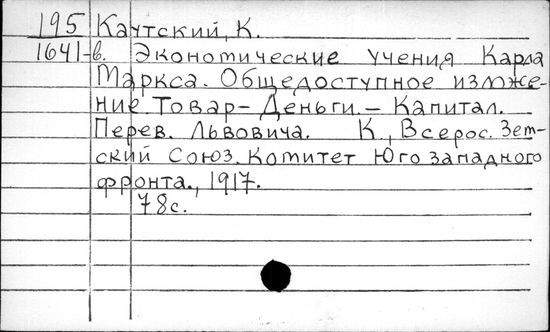 195 Каутский, К.
1641-в. Экономические учения Карла
Маркса. Общедоступное изложе-
ние. Товар - Деньги. - Капитал.
Перев. Львовича. К., Всерос. Зем-
ский Союз. Комитет Юго западного
фронта., 1917.
78с.